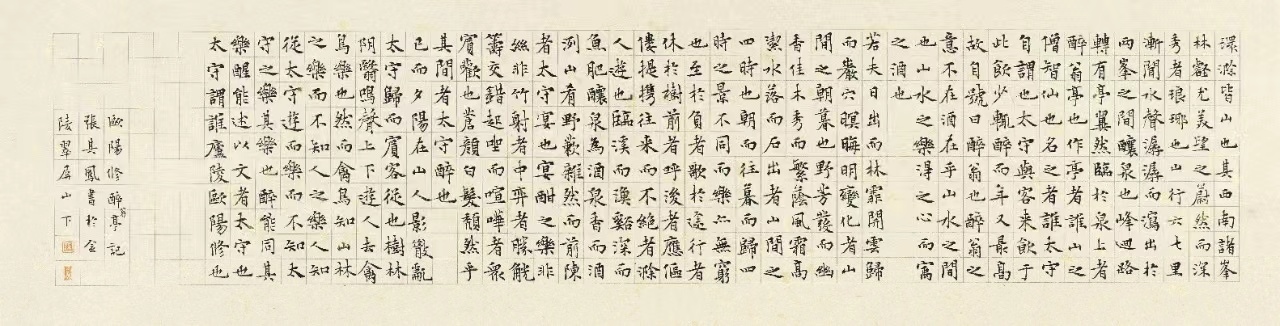 環滁皆山也其西南諸峯
林壑尤美望之蔚然而深
秀者琅琊也山行六七里
漸聞水聲潺潺而瀉出於
兩峯之間釀泉也峰迴路
轉有亭翼然臨於泉上者
醉翁亭也作亭者誰山之
僧智仙也名之者誰太守
自謂也太守與客來飲于
此飲少輒醉而年又最高
故自號曰醉翁也醉翁之
意不在酒在乎山水之間
也山水之樂得之心而寓
之酒也
若夫日出而林霏開雲歸
而巖穴暝晦明變化者山
間之朝暮也野芳發而幽
香佳木秀而繁蔭風霜高
潔水落而石出者山間之
四時也朝而往暮而歸四
時之景不同而樂亦無窮
也至於負者歌於途行者
休於樹前者呼後者應傴
僂提攜往來而不絕者滁
人遊也臨溪而漁谿深而
魚肥釀泉為酒泉香而酒
洌山肴野蔌雜然而前陳
者太守宴也宴酣之樂非
絲非竹射者中弈者勝觥
籌交錯起坐而喧嘩者眾
賓歡也蒼顏白髮頹然乎
其間者太守醉也
已而夕陽在山人影散亂
太守歸而賓客從也樹林
陰翳鳴聲上下遊人去禽
鳥樂也然而禽鳥知山林
之樂而不知人之樂人知
從太守遊而樂而不知太
守之樂其樂也醉能同其
樂醒能述以文者太守也
太守謂誰廬陵歐陽修也
歐陽修醉翁亭記
張其鳳書於金
陵翠屏山下